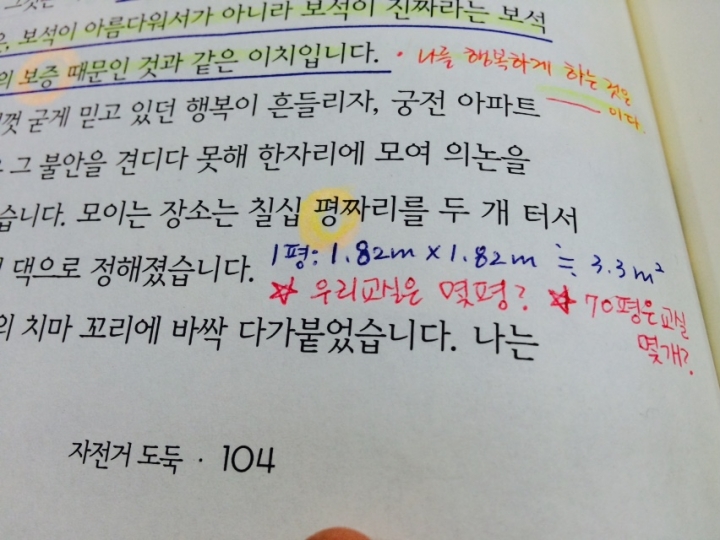 보석이 아름다워서가 아니라 보석이 진짜라는 보석
의 보증 때문인 것과 같은 이치입니다. · 나를 행복하게 하는 것은
── 이다.
굳게 믿고 있던 행복이 흔들리자, 궁전 아파트
그 불안을 견디다 못해 한자리에 모여 의논을
습니다. 모이는 장소는 칠십 평짜리를 두 개 터서
댁으로 정해졌습니다. 1평: 1.82m × 1.82m ≒ 3.3m²
☆ 우리교실은 몇평? ☆ 70평은 교실
몇개?
의 치마 꼬리에 바싹 다가붙었습니다. 나는
자전거 도둑 · 104